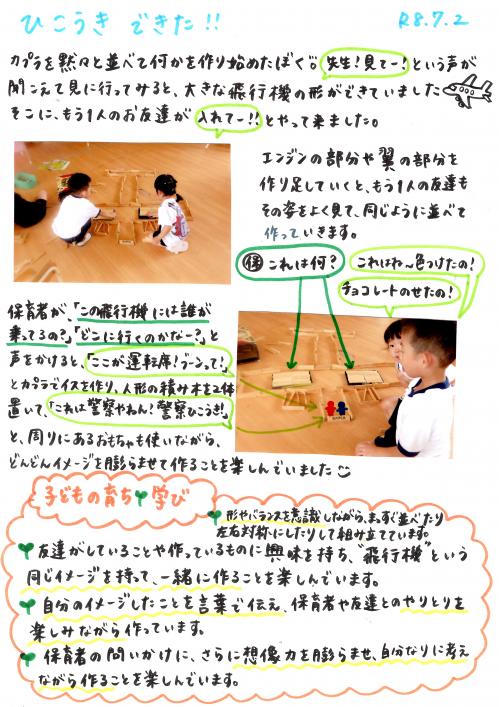 ひこうき できた!!
R8.7.2
カプラを黙々と並べて何かを作り始めたぼく組。先生!見てー!という声が
聞こえて見に行ってみると、大きな飛行機の形ができていました
そこに、もう1人のお友達が 入れてー!! とやって来ました。
エンジンの部分や翼の部分を
作り足していくと、もう1人の友達も
その姿をよく見て、同じように並べて
作っていきます。
保 これは何?
これはね~色つけたの!
チョコレートのせたの!
保育者が、「この飛行機には誰が
乗ってるの?」「どこに行くのかな~?」と
声をかけると、「ここが運転席!ブーンって!」
とカプラでイスを作り、人形の積み木を2体
置いて、「これは警察やねん!警察ひこうき!」
と、周りにあるおもちゃも使いながら、
どんどんイメージを膨らませて作ることを楽しんでいました
子どもの育ち 学び
形やバランスを意識しながら、まっすぐ並べたり
左右対称にしたりして組み立てています。
友達がしていることや作っているものに興味を持ち、"飛行機"という
同じイメージを持って、一緒に作ることを楽しんでいます。
自分のイメージしたことを言葉で伝え、保育者や友達とのやりとりを
楽しみながら作っています。
保育者の問いかけに、さらに想像力を膨らませ、自分なりに考え
ながら作ることを楽しんでいます。